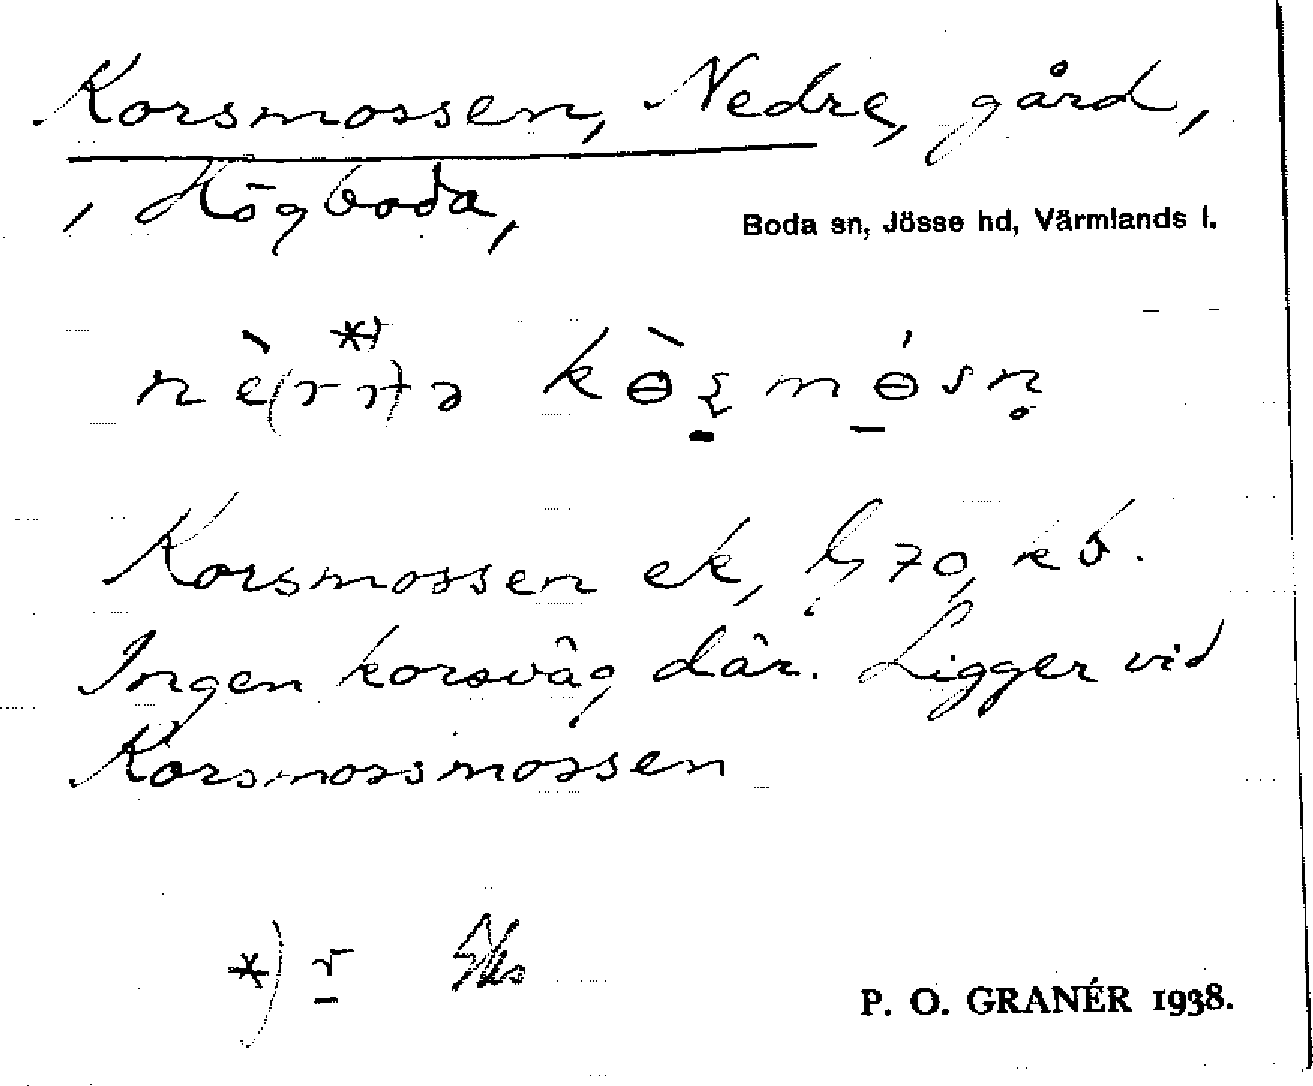 Korsmossen, Nedre, gård,
, Högboda,
Boda sn, Jösse hd, Värmlands l.
Korsmossen ek, G 70, kb.
Ingen korsväg där. Ligger vid
Korsmossmossen
*) r
P. O. GRANÉR 1938.